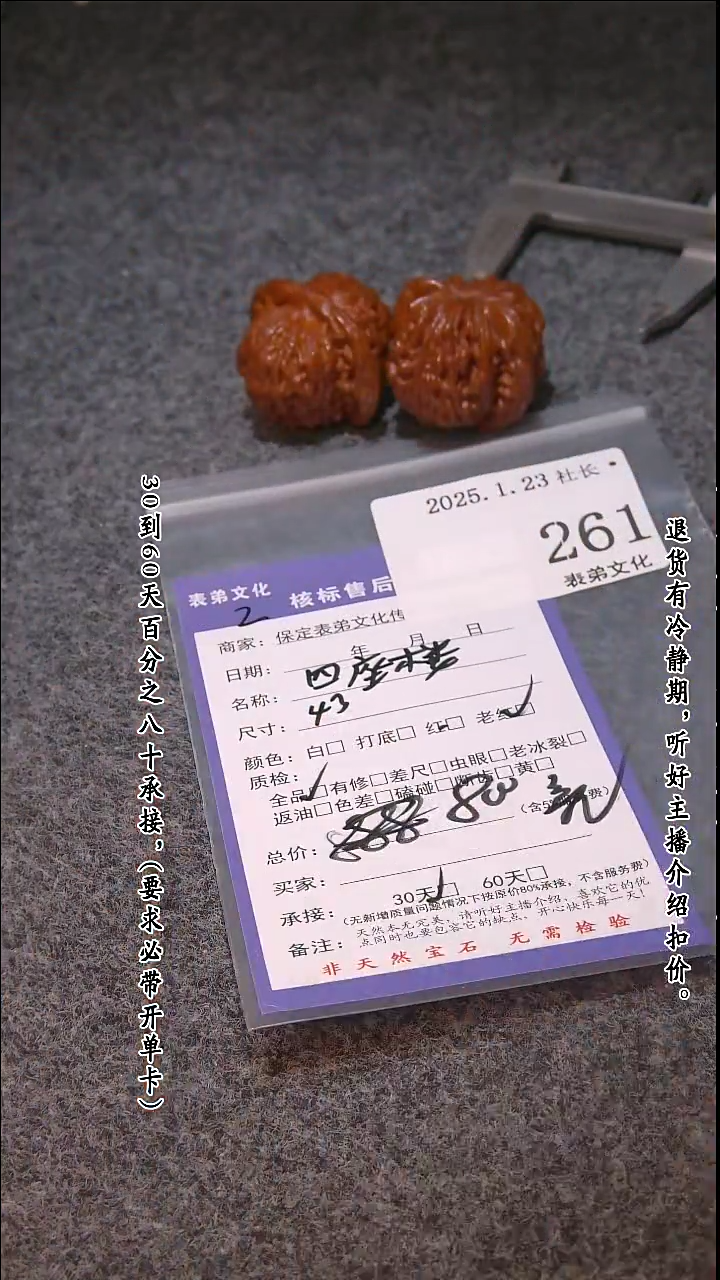 2025.1.23 社长
261
表弟文化
表弟文化
2
核标售后
商家：保定表弟文化传
日期： 年 月 日
名称：四座楼
尺寸：43
颜色：白□ 打底□ 红□ 老红□
质检：
全品□有修□差尺□虫眼□老冰裂□
返油□色差□磕碰□断齿□黄□
总价： 800元 （含 费）
买家：
承接： 30天□ 60天□
（无新增质量问题情况下按原价80%承接，不含服务费）
备注：天然本无完美，请听好主播介绍，喜欢它的优
点同时也要包容它的缺点，开心快乐每一天！
非天然宝石 无需检验
30到60天百分之八十承接，（要求必带开单卡）
退货有冷静期，听好主播介绍扣价。